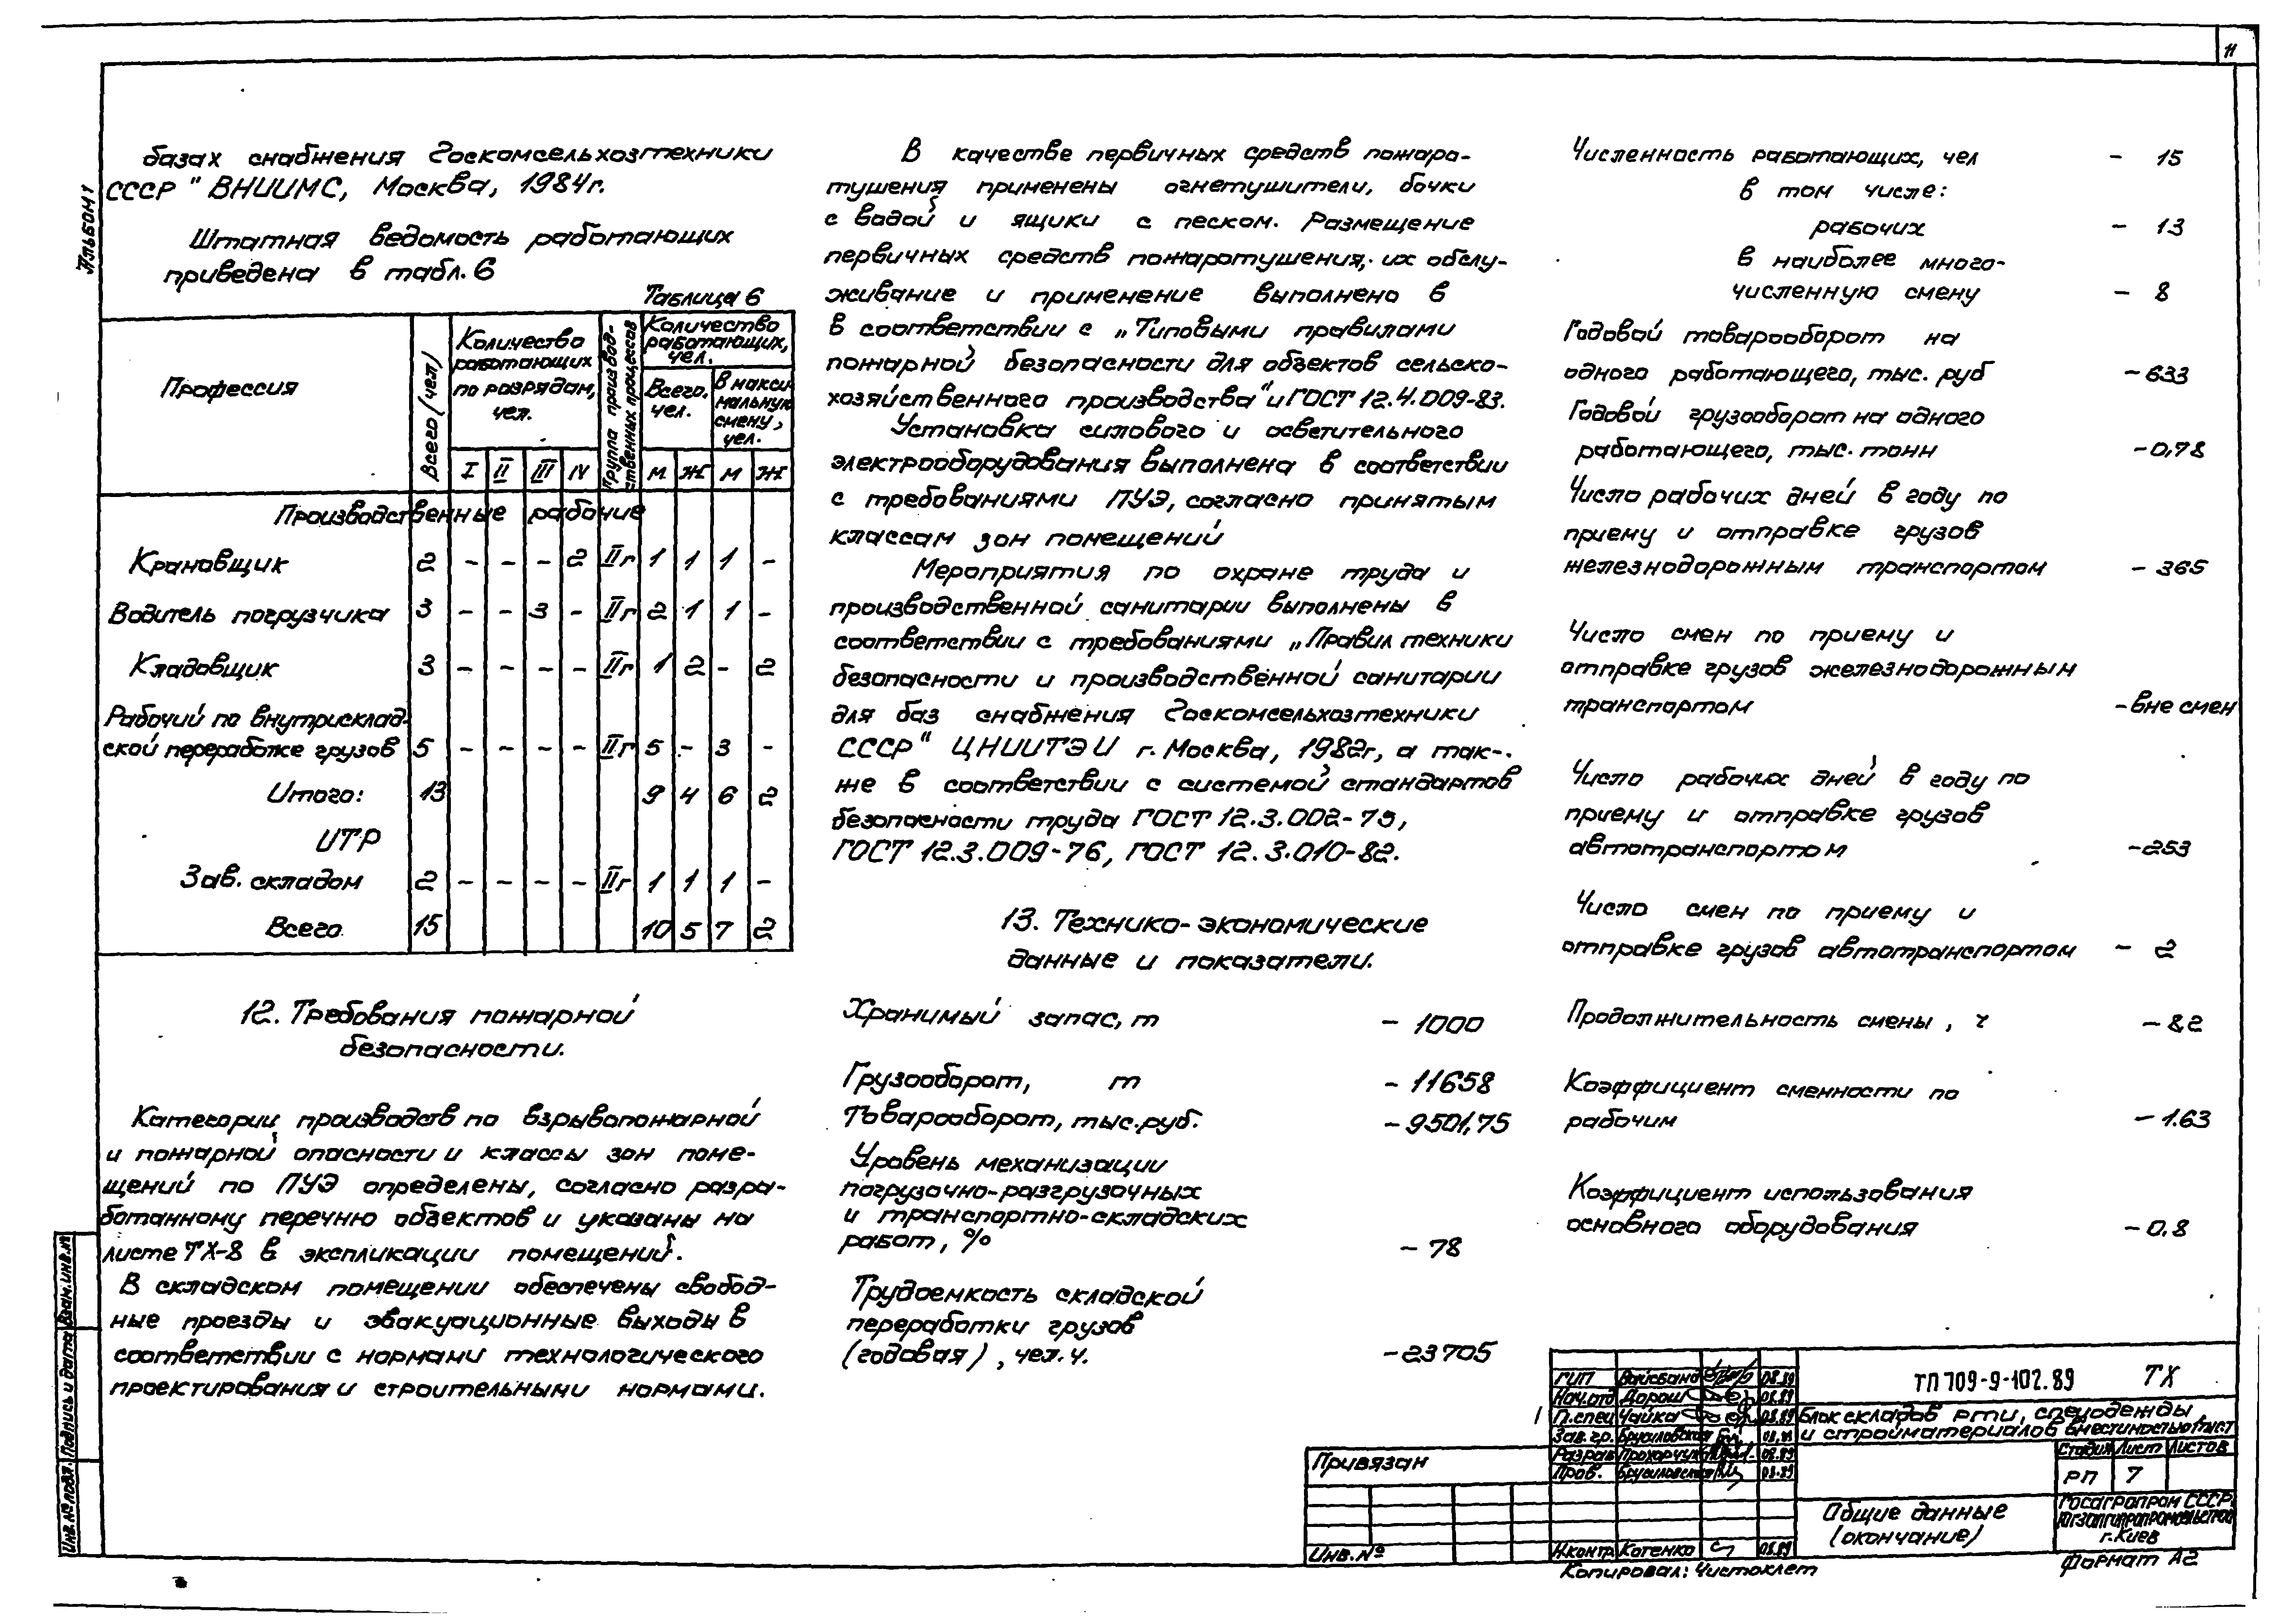 11
Альбом 1
базах снабжения Госкомсельхозтехники
СССР" ВНИИМС, Москва, 1984г.
Штатная ведомость работающих
приведена в табл. 6
Таблица 6
Профессия | Всего (чел) | Количество работающих по разрядам, чел. | Группа производственных процессов | Количество работающих, чел.
Всего, чел. | В максимальную смену, чел.
I | II | III | IV | М | Ж | М | Ж
Производственные рабочие
Крановщик 2 - - - 2 IIг 1 1 1 -
Водитель погрузчика 3 - - 3 - IIг 2 1 1 -
Кладовщик 3 - - - - IIг 1 2 - 2
Рабочий по внутрисклад-
ской переработке грузов 5 - - - - IIг 5 - 3 -
Итого: 13 9 4 6 2
ИТР
Зав. складом 2 - - - - IIг 1 1 1 -
Всего 15 10 5 7 2
12. Требования пожарной
безопасности.
Категории производств по взрывопожарной
и пожарной опасности и классы зон поме-
щений по ПУЭ определены, согласно разра-
ботанному перечню объектов и указаны на
листе ТХ-8 в экспликации помещений.
В складском помещении обеспечены свобод-
ные проезды и эвакуационные выходы в
соответствии с нормами технологического
проектирования и строительными нормами.
В качестве первичных средств пожаро-
тушения применены огнетушители, бочки
с водой и ящики с песком. Размещение
первичных средств пожаротушения, их обслу-
живание и применение выполнено в
в соответствии с „Типовыми правилами
пожарной безопасности для объектов сельско-
хозяйственного производства" и ГОСТ 12.4.009-83.
Установка силового и осветительного
электрооборудования выполнена в соответствии
с требованиями ПУЭ, согласно принятым
классам зон помещений
Мероприятия по охране труда и
производственной санитарии выполнены в
соответствии с требованиями „Правил техники
безопасности и производственной санитарии
для баз снабжения Госкомсельхозтехники
СССР" ЦНИИТЭИ г. Москва, 1982г, а так-
же в соответствии с системой стандартов
безопасности труда ГОСТ 12.3.002-75,
ГОСТ 12.3.009-76, ГОСТ 12.3.010-82.
13. Технико-экономические
данные и показатели.
Хранимый запас, т - 1000
Грузооборот, т - 11658
Товарооборот, тыс.руб. - 9501,75
Уровень механизации
погрузочно-разгрузочных
и транспортно-складских
работ, % - 78
Трудоемкость складской
переработки грузов
(годовая), чел.ч. - 23705
Численность работающих, чел - 15
в том числе:
рабочих - 13
в наиболее много-
численную смену - 8
Годовой товарооборот на
одного работающего, тыс. руб - 633
Годовой грузооборот на одного
работающего, тыс. тонн - 0,78
Число рабочих дней в году по
приему и отправке грузов
железнодорожным транспортом - 365
Число смен по приему и
отправке грузов железнодорожным
транспортом - вне смен
Число рабочих дней в году по
приему и отправке грузов
автотранспортом - 253
Число смен по приему и
отправке грузов автотранспортом - 2
Продолжительность смены, ч - 8,2
Коэффициент сменности по
рабочим - 1.63
Коэффициент использования
основного оборудования - 0.8
Взам. инв. №
Подпись и дата
Инв. № подл.
Привязан
Инв. №
ГИП 08.89
Нач.отд Дорош 08.89
Гл.спец Чайка 08.89
Зав. гр. Брусиловская
Разраб Прохорчук 08.89
Пров. Брусиловская 08.89
Н.контр Котенко 08.89
ТП 709-9-102.89 ТХ
Блок складов рти, спецодежды,
и стройматериалов
Стадия Лист Листов
РП 7
Общие данные
(окончание)
Госагропром СССР
г. Киев
Копировал: Чистоклет
Формат А2